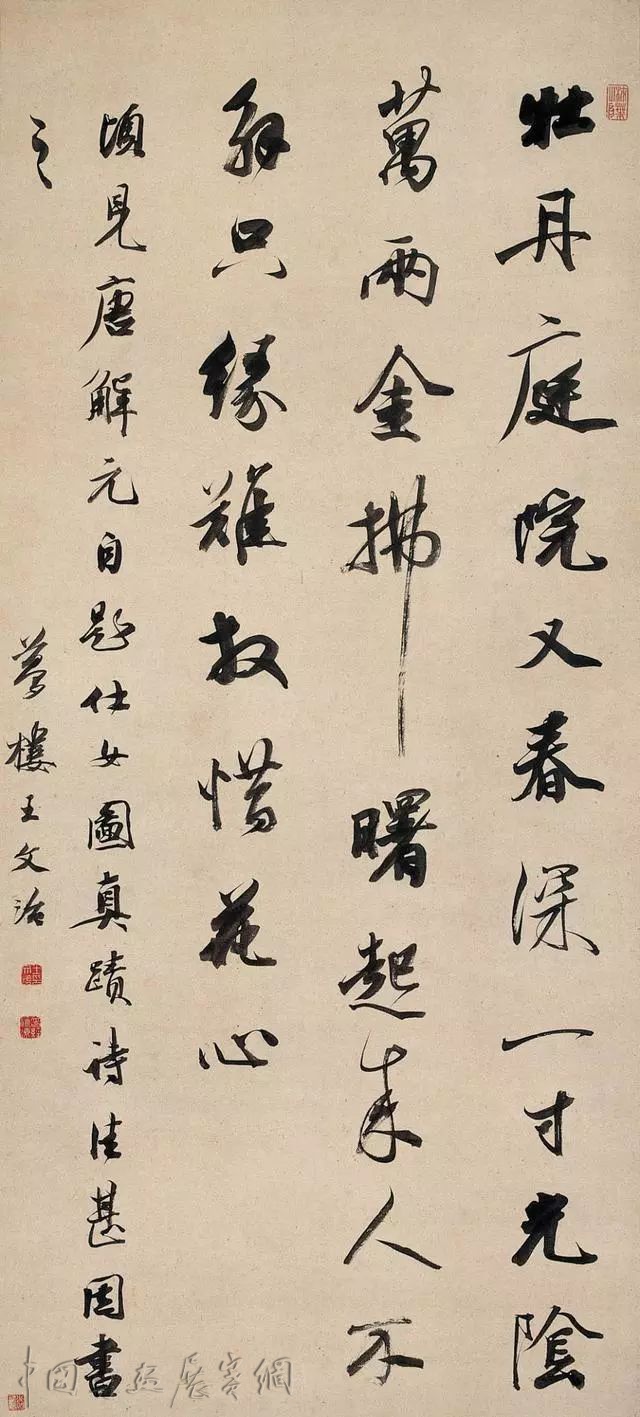 牡丹庭院又春深一寸光陰
萬兩金拂曙起來人不
解只緣難放惜花心
頃見唐解元自題仕女圖真蹟詩佳甚因書
之
夢樓王文治
中國展賽網